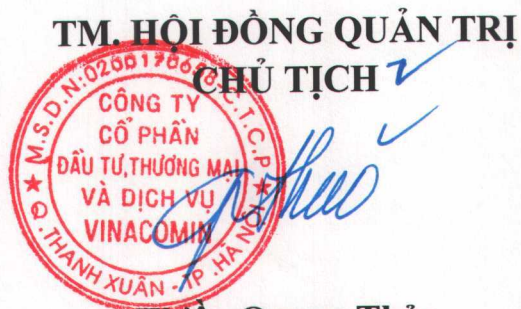 TM. HỘI ĐỒNG QUẢN TRỊ
CHỦ TỊCH
M.S.D.N:
C.T.C.P
CÔNG TY
CỔ PHẦN
ĐẦU TƯ,THƯƠNG MẠI
VÀ DỊCH VỤ
VINACOMIN
Q.THANH XUÂN - TP.HÀ NỘI
Quang